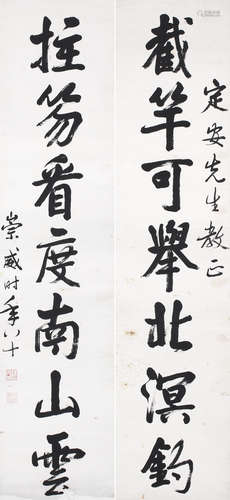 定安先生教正
截竿可舉北溟釣
拄笏看度南山雲
崇威时年八十